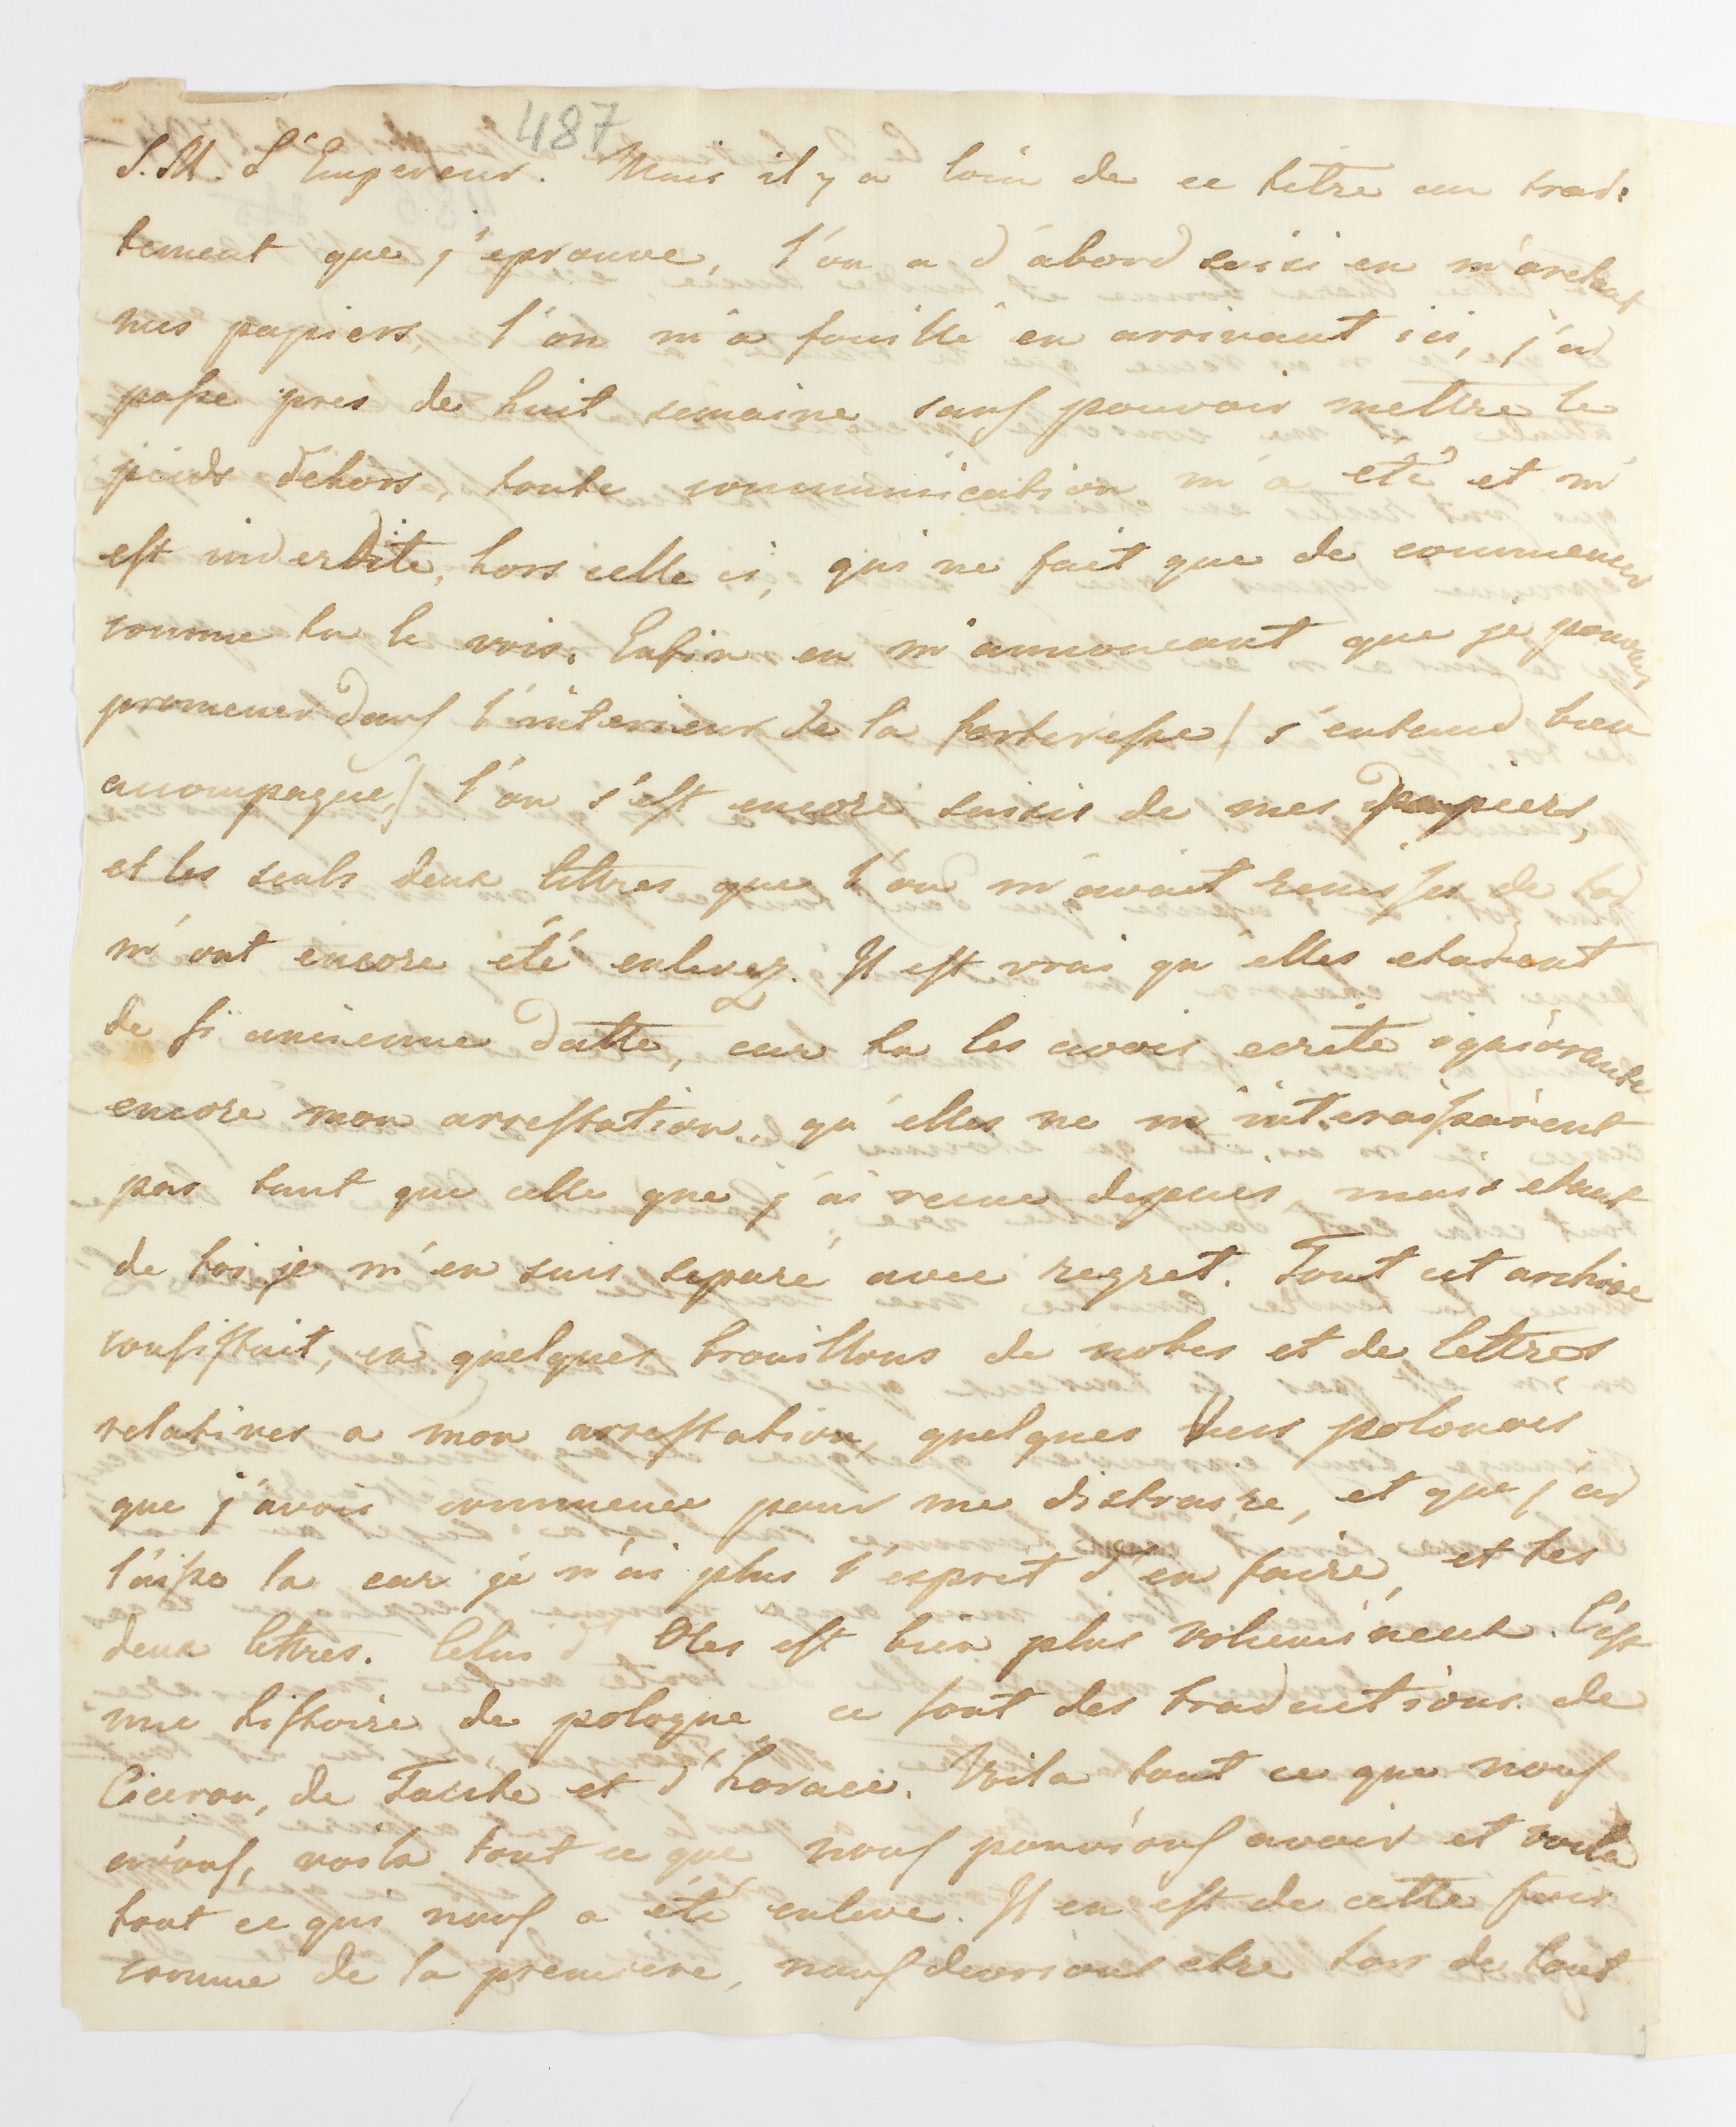 487
S. M. L'Empereur. Mais il y a loin de ce titre au trai:
tement que j'eprouve, l'on a d'abord saisi en m'aretant
mes papiers, l'on m'a fouillé en arrivant ici, j'ai
passe pres de huit semaine sans pouvoir mettre le
pieds dehors, toute communication m'a eté et m'
est interdite, hors celle ci, qui ne fait que de commencer
comme tu le vois. Enfin en m'annoncant que je pouvais
promener dans l'interrieur de la forteresse / s'entend bien
accompagné / l'on s'est encore saisis de mes papiers,
et les seuls deux lettres que l'on m'avoit remisses de toi
m'ont encore été enlevez. Il est vrai qu'elles etaient
de si ancienne datte, car tu les avois ecrite ignorante
encore mon arrestation, qu'elles ne m'interaissaient
pas tant que celle que j'ai recue depuis, mais etant
de toi je m'en suis separé avec regret. Tout cet archive
consistait, en quelques brouillons de notes et de lettres
relatives a mon arrestation, quelques Vers polonois
que j'avois commence pour me distraire, et que j'ai
laisse la car je n'ai plus l'esprit d'en faire, et tes
deux lettres. Celui d' Ales est bien plus volumineux. C'est
une histoire de pologne, ce sont des traductions de
Ciceron, de Tacite et d'horace. Voila tout ce que nous
avons, voila tout ce que nous pouvions avoir et voila
tout ce qui nous a été enleve. Il en est de cette fois
comme de la premiere, nous devrions etre lors de tout